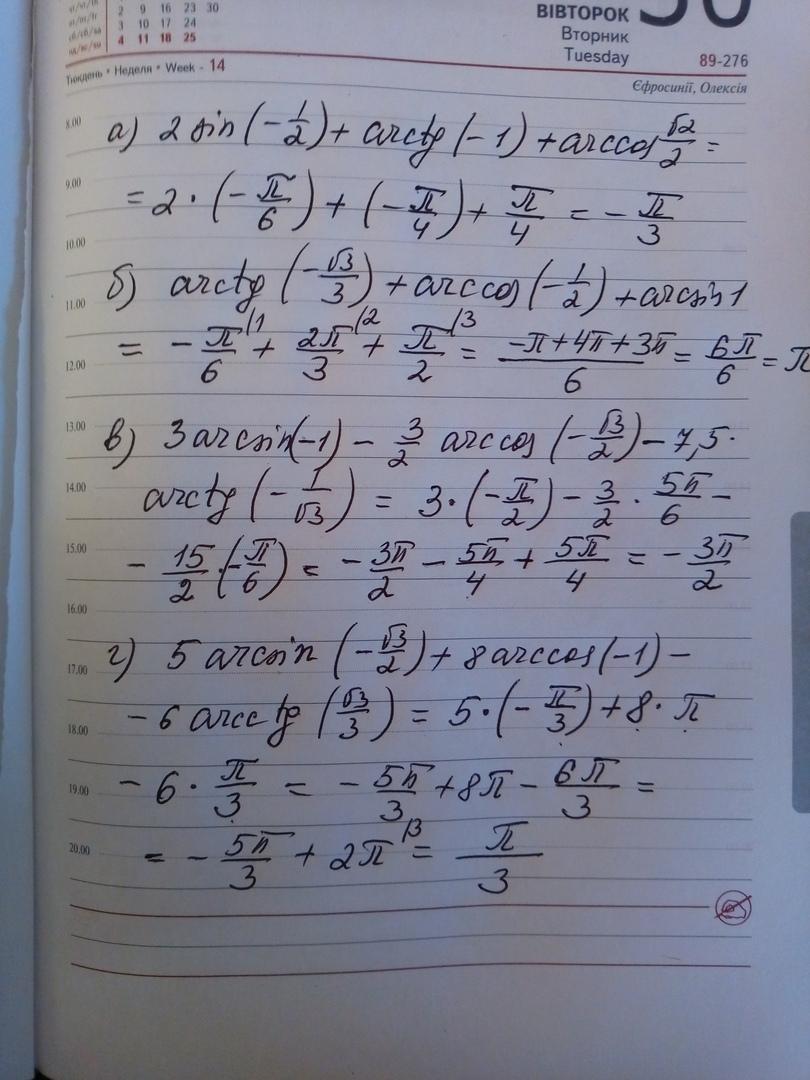 2 9 16 23 30
3 10 17 24
4 11 18 25
ВІВТОРОК
Вторник
Tuesday
30
89-276
Тиждень • Неделя • Week - 14
Єфросинії, Олексія
8.00
а) 2 sin (-1/2) + arctg (-1) + arccos √2/2 =
9.00
= 2 · (-π/6) + (-π/4) + π/4 = - π/3
10.00
б) arctg (-√3/3) + arccos (-1/2) + arcsin 1
11.00
= - π/6 |1 + 2π/3 |2 + π/2 |3 = (-π+4π+3π)/6 = 6π/6 = π
12.00
13.00
в) 3 arcsin(-1) - 3/2 arccos (-√3/2) - 7,5 ·
14.00
arctg (-1/√3) = 3 · (-π/2) - 3/2 · 5π/6 -
15.00
- 15/2 · (-π/6) = - 3π/2 - 5π/4 + 5π/4 = - 3π/2
16.00
г) 5 arcsin (-√3/2) + 8 arccos (-1) -
17.00
- 6 arcctg (√3/3) = 5 · (-π/3) + 8 · π
18.00
- 6 · π/3 = - 5π/3 + 8π - 6π/3 =
19.00
= - 5π/3 + 2π |3 = π/3
20.00